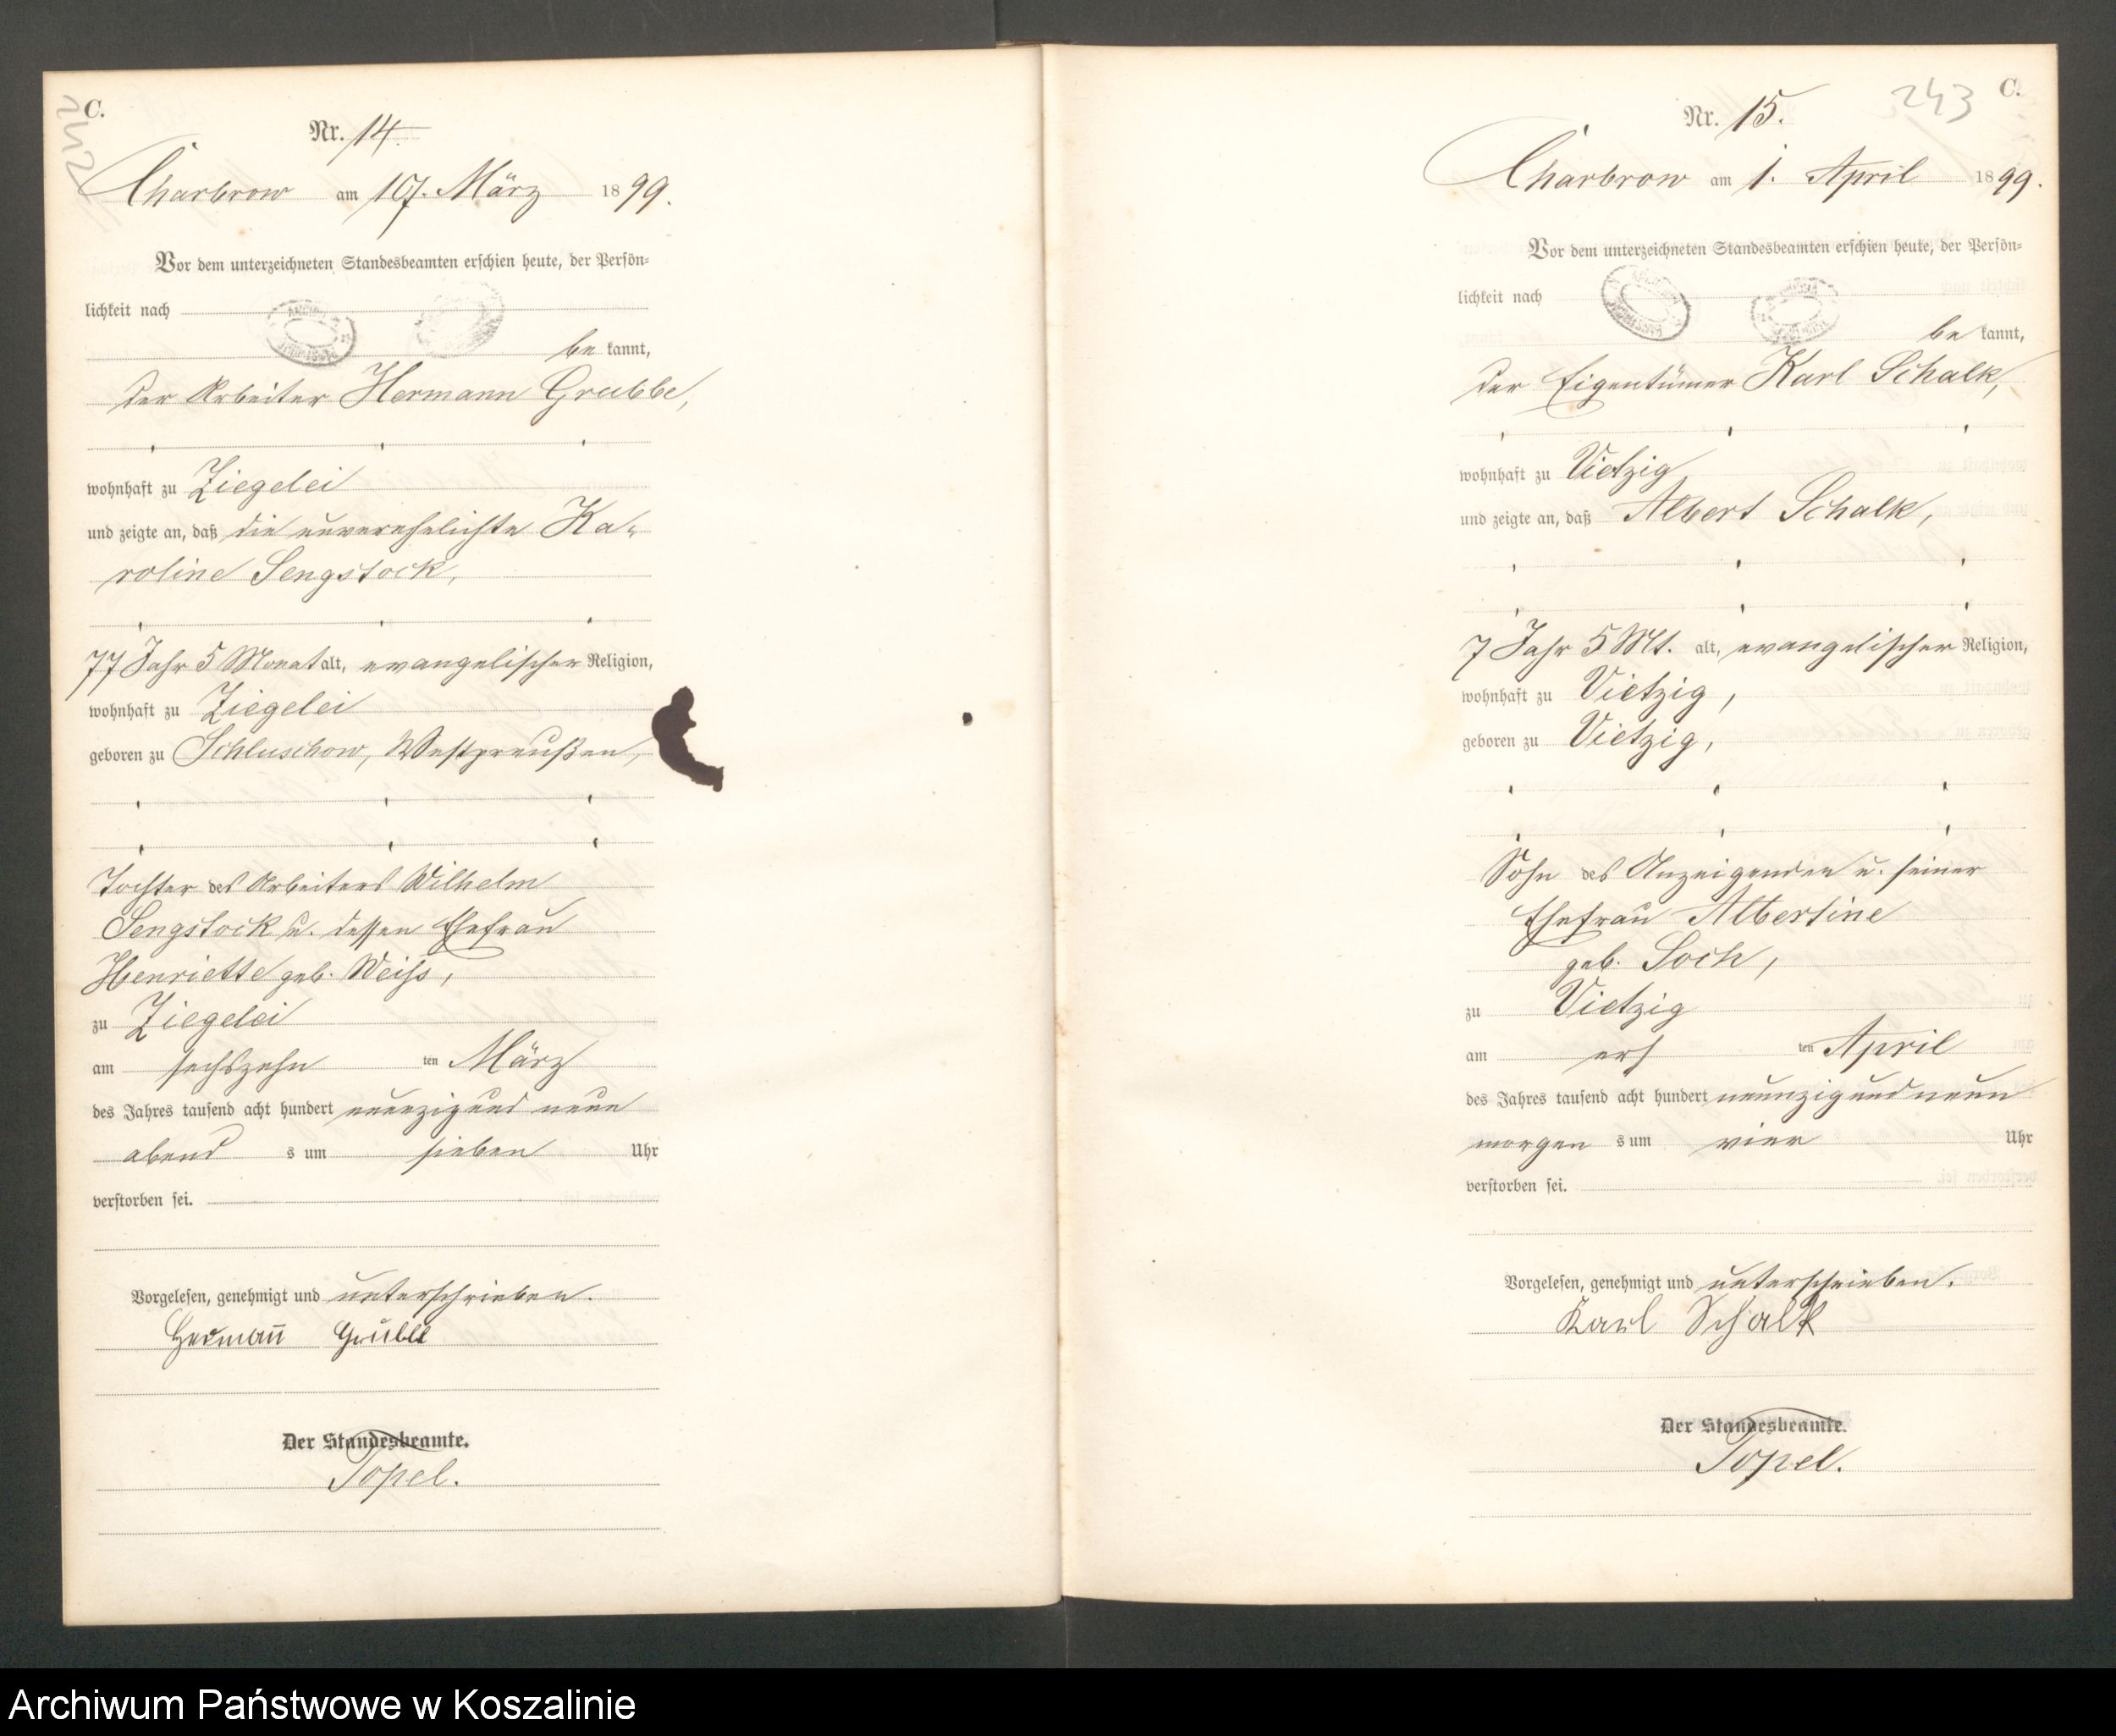 242
C.
Nr. 14.
Charbrow am 17. März 1899.
Vor dem unterzeichneten Standesbeamten erschien heute, der Persön=
lichkeit nach
be kannt,
der Arbeiter Hermann Grubbe,
wohnhaft zu Ziegelei
und zeigte an, daß die unverehelichte Ka=
roline Sengstock,
77 Jahr 5 Monat alt, evangelischer Religion,
wohnhaft zu Ziegelei
geboren zu Schluschow, Westpreußen,
Tochter des Arbeiters Wilhelm
Sengstock u. dessen Ehefrau
Henriette geb. Weiss,
zu Ziegelei
am sechszehn ten März
des Jahres tausend acht hundert neunzig und neun
abend s um sieben Uhr
verstorben sei.
Vorgelesen, genehmigt und unterschrieben.
Hermann Grubbe
Der Standesbeamte.
Topel.
243
C.
Nr. 15.
Charbrow am 1. April 1899.
Vor dem unterzeichneten Standesbeamten erschien heute, der Persön=
lichkeit nach
be kannt,
der Eigentümer Karl Schalk,
wohnhaft zu Vietzig
und zeigte an, daß Albert Schalk,
7 Jahr 5 Mt. alt, evangelischer Religion,
wohnhaft zu Vietzig,
geboren zu Vietzig,
Sohn des Anzeigenden u. seiner
Ehefrau Albertine
geb. Soch,
zu Vietzig
am ers ten April
des Jahres tausend acht hundert neunzig und neun
morgen s um vier Uhr
verstorben sei.
Vorgelesen, genehmigt und unterschrieben.
Karl Schalk
Der Standesbeamte.
Topel.
Archiwum Państwowe w Koszalinie